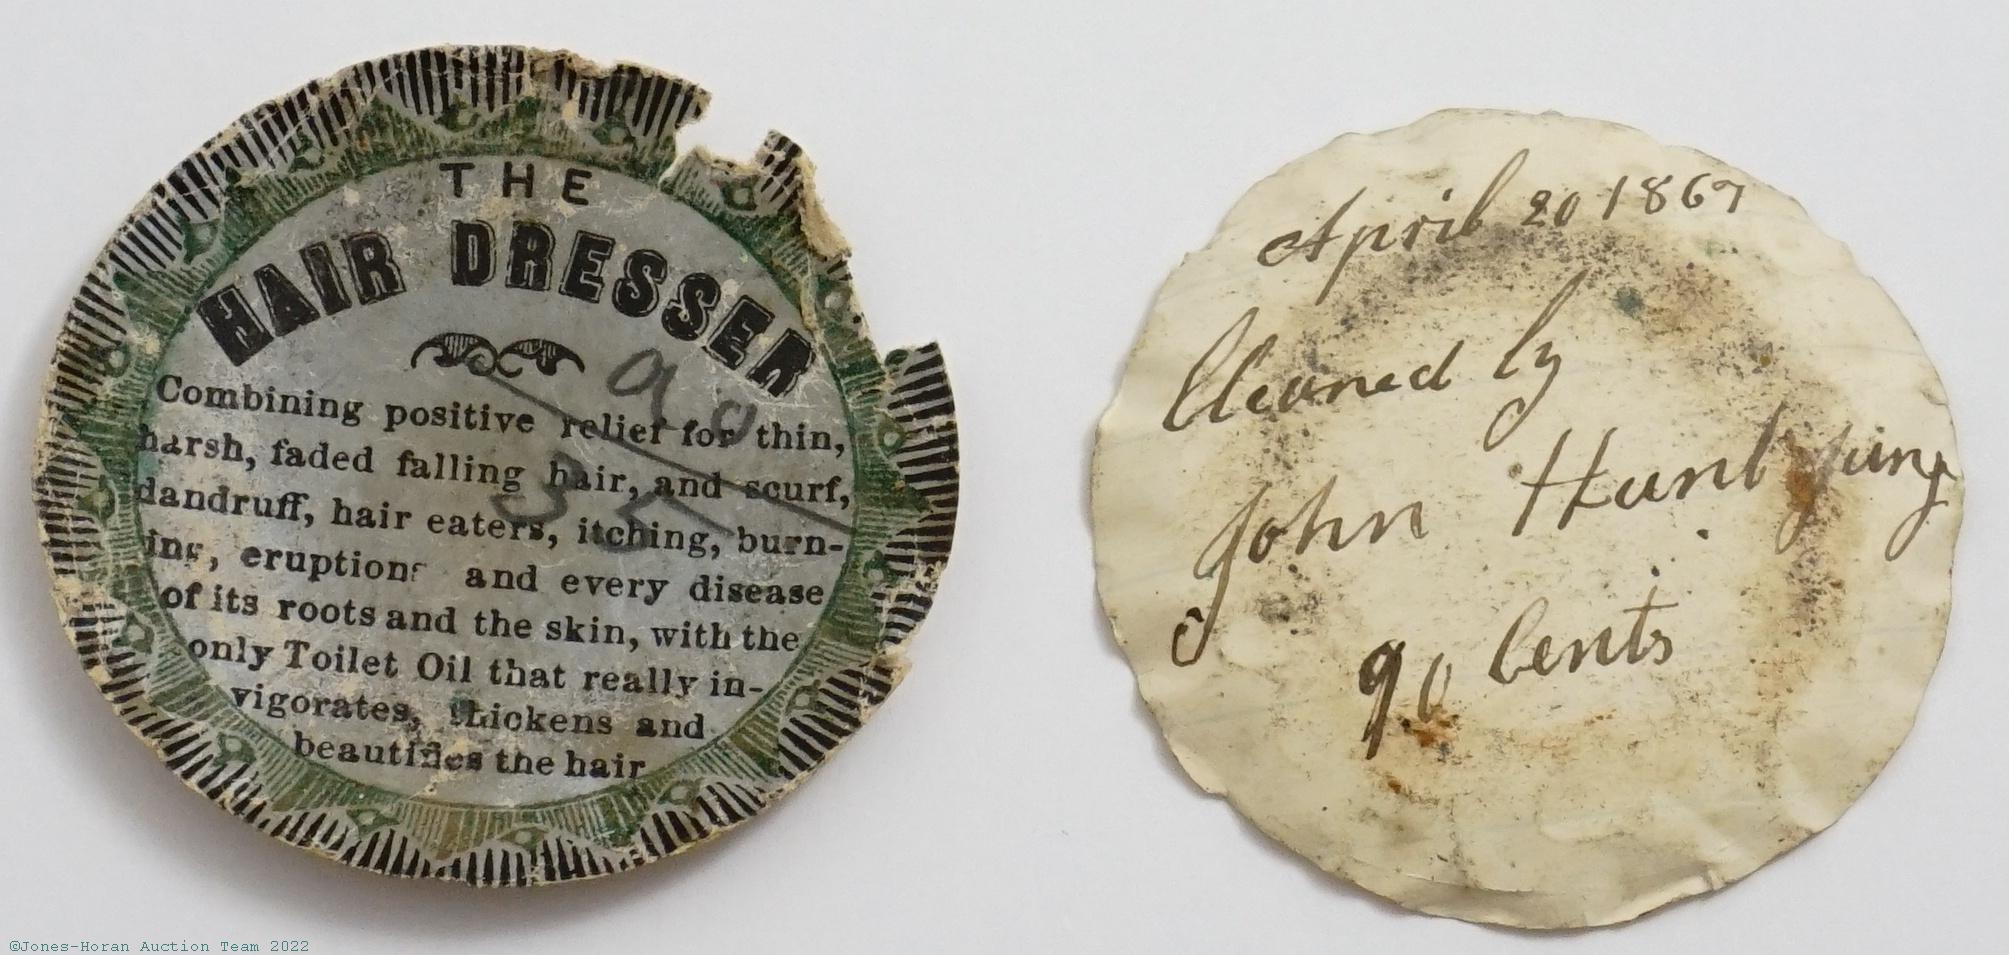 THE
HAIR DRESSER
Combining positive relief for thin,
harsh, faded falling hair, and scurf,
dandruff, hair eaters, itching, burn-
ing, eruptions and every disease
of its roots and the skin, with the
only Toilet Oil that really in-
vigorates, thickens and
beautifies the hair
90
35
April 20 1867
Cleaned by
John
90 Cents
©Jones-Horan Auction Team 2022